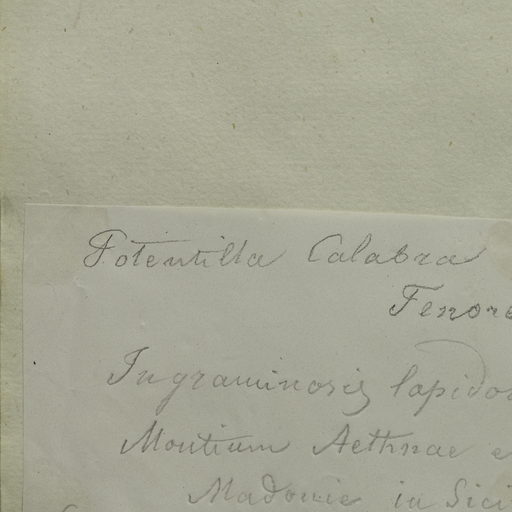 Potentilla Calabra
Tenore
In graminosis lapidos
Montium Aethnae e
Madonie in Sici